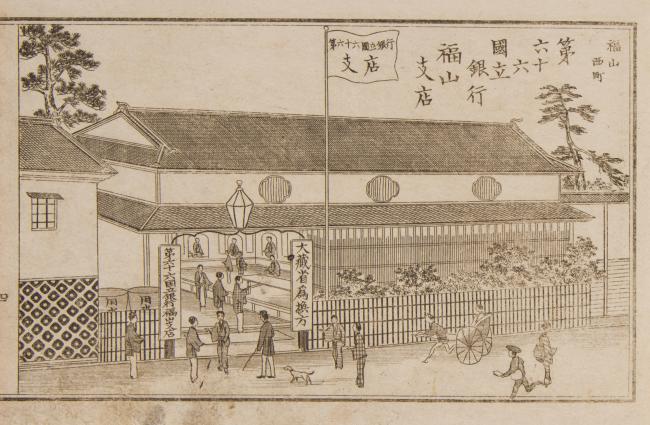 福山
西町
第六十六
國立銀行
福山支店
第六十六國立銀行
支店
大藏省爲換方
第六十六國立銀行福山支店
用水
用水